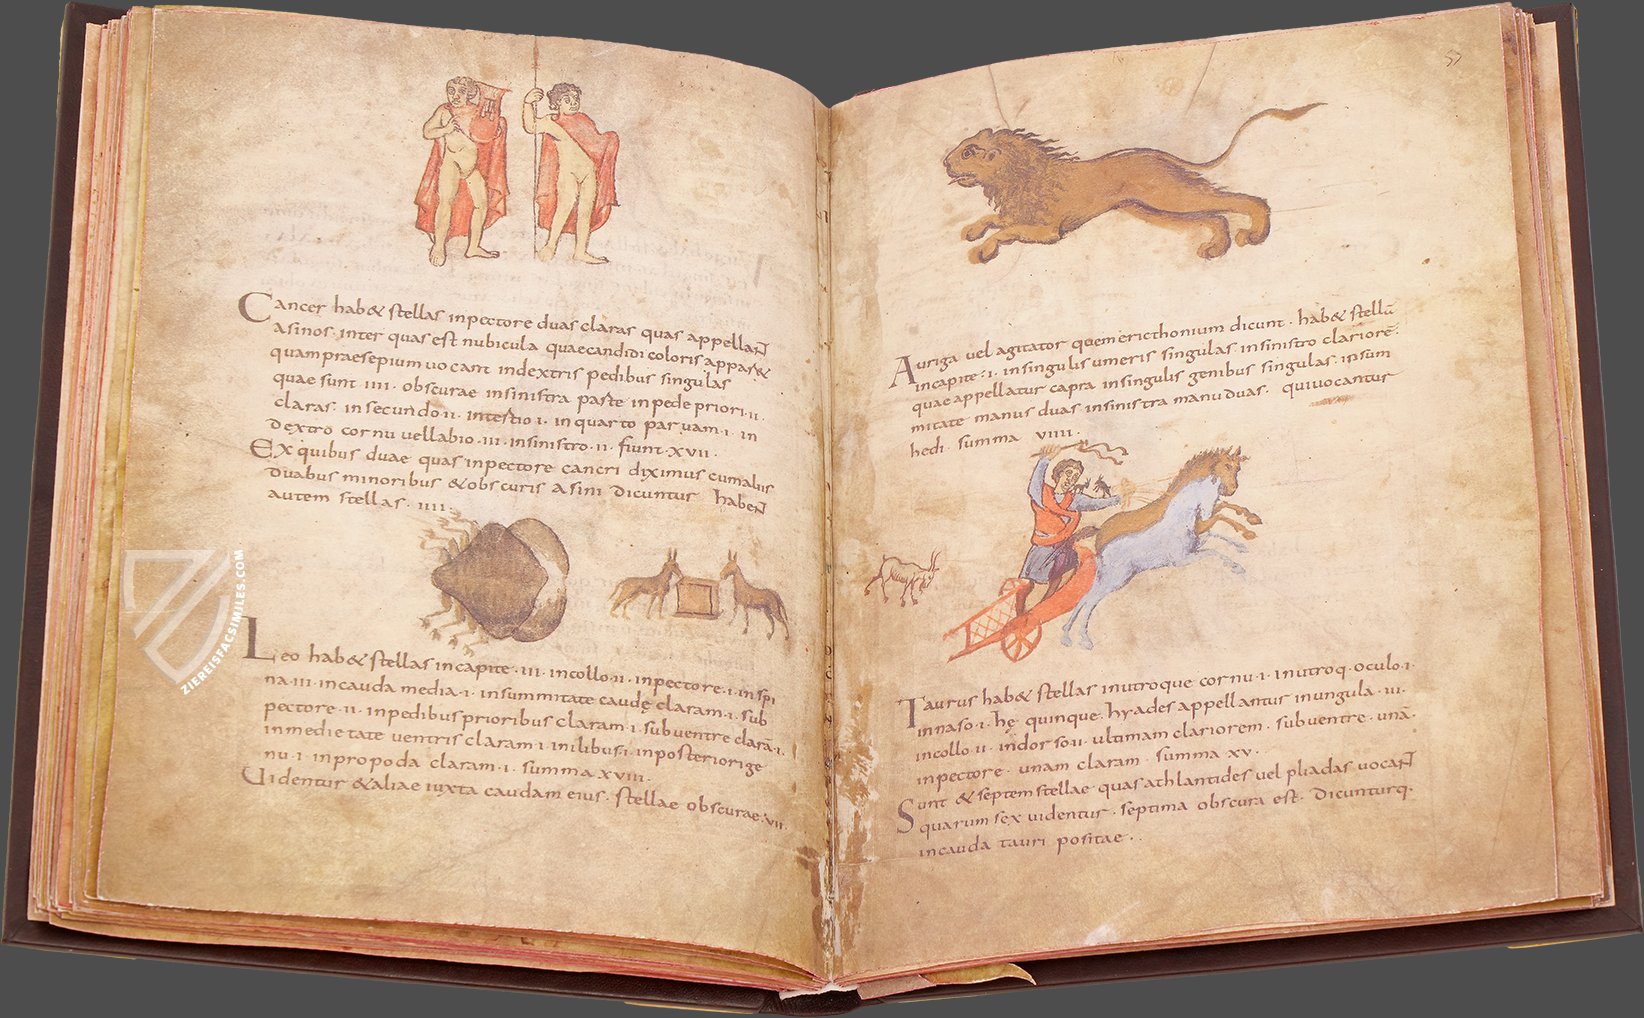 Cancer hab& stellas inpectore duas claras quas appellant
asinos · inter quas est nubicula quae candidi coloris appar&
quam praesepium uocant indextris pedibus singulas
quae sunt IIII · obscurae insinistra parte inpede priori · II ·
claras · insecundo · II · intertio I · inquarto paruam · I · in
dextro cornu uel labio · III · insinistro · II · fiunt · XVII ·
Ex quibus duae quas inpectore cancri diximus cum aliis
duabus minoribus & obscuris asini dicuntur habent
autem stellas · IIII ·
Leo hab& stellas incapite · III · incollo · II · inpectore · I · inspi
na · III · incauda media · I · insummitate caudę claram · I · sub
pectore · II · inpedibus prioribus claram · I · subuentre clarā · I ·
inmedietate uentris claram · I · inilibus · I · inposteriori ge
nu · I · inpropoda claram · I · summa XVIII ·
Videntur & aliae iuxta caudam eius · stellae obscurae · VII ·
57
Auriga uel agitator quem ericthonium dicunt · hab& stellā
incapite · I · insingulis umeris singulas insinistro clariorē ·
quae appellatur capra insingulis genibus singulas · insum
mitate manus duas insinistra manu duas · qui uocantur
hedi · summa VIIII ·
Taurus hab& stellas inutroque cornu · I · inutroq · oculo · I ·
innaso · I · hę quinque · hyades appellantur inungula · III ·
incollo II · indorso · II · ultimam clariorem · subuentre · unā ·
inpectore · unam claram · summa XV ·
Sunt & septem stellae quas athlantides uel pliadas uocant
quarum sex uidentur · septima obscura est · Dicuntur q ·
incauda tauri positae ·
ZIEREISFACSIMILES.COM